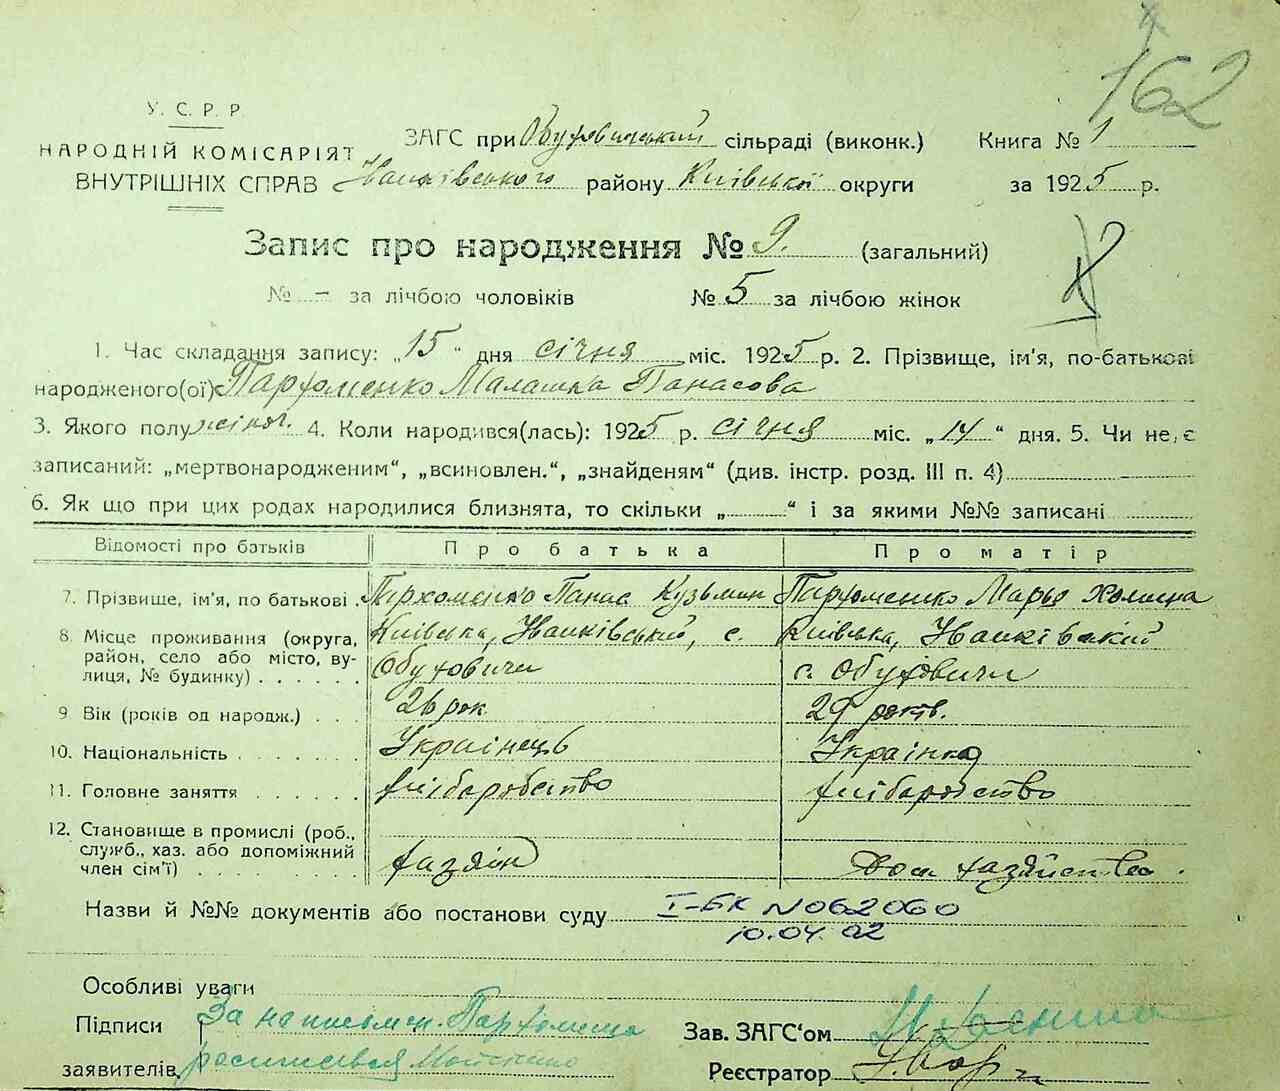 162
У. С. Р. Р
НАРОДНІЙ КОМІСАРІЯТ
ВНУТРІШНІХ СПРАВ
ЗАГС при Обуховицький сільраді (виконк.) Книга № 1
Іванківського району Київської округи за 1925 р.
Запис про народження № 9. (загальний)
№ - за лічбою чоловіків № 5 за лічбою жінок
1. Час складання запису: „15" дня січня міс. 1925 р. 2. Прізвище, ім'я, по-батькові
народженого(ої) Пархоменко Малашка Панасова
3. Якого полу жіноч. 4. Коли народився(лась): 1925 р. січня міс. „14" дня. 5. Чи не є
записаний: „мертвонародженим", „всиновлен.", „знайденям" (див. інстр. розд. III п. 4)
6. Як що при цих родах народилися близнята, то скільки „ " і за якими №№ записані
Відомості про батьків Про батька Про матір
7. Прізвище, ім'я, по батькові Пархоменко Панас Кузьмин Пархоменко Марья
8. Місце проживання (округа, Київська, Іванківський, с. Київська, Іванківський
район, село або місто, ву- Обуховичи с. Обуховичи
лиця, № будинку)
9 Вік (років од народж.) 26 рок 29 років.
10. Національність Українець Українка
11. Головне заняття хліборобство хліборобство
12. Становище в промислі (роб.,
служб., хаз. або допоміжний
член сім'ї) хазяїн Дом хазяйство.
Назви й №№ документів або постанови суду І-БК N062060
10.04.02
Особливі уваги
Підписи За неписьмен.
заявителів
Зав. ЗАГС'ом
Реєстратор